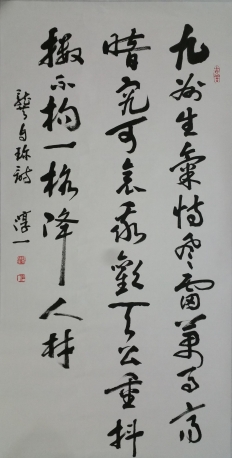 九州生氣恃風雷萬馬齊
暗究可哀我勸天公重抖
擻不拘一格降人材
龔自珍詩 淳一